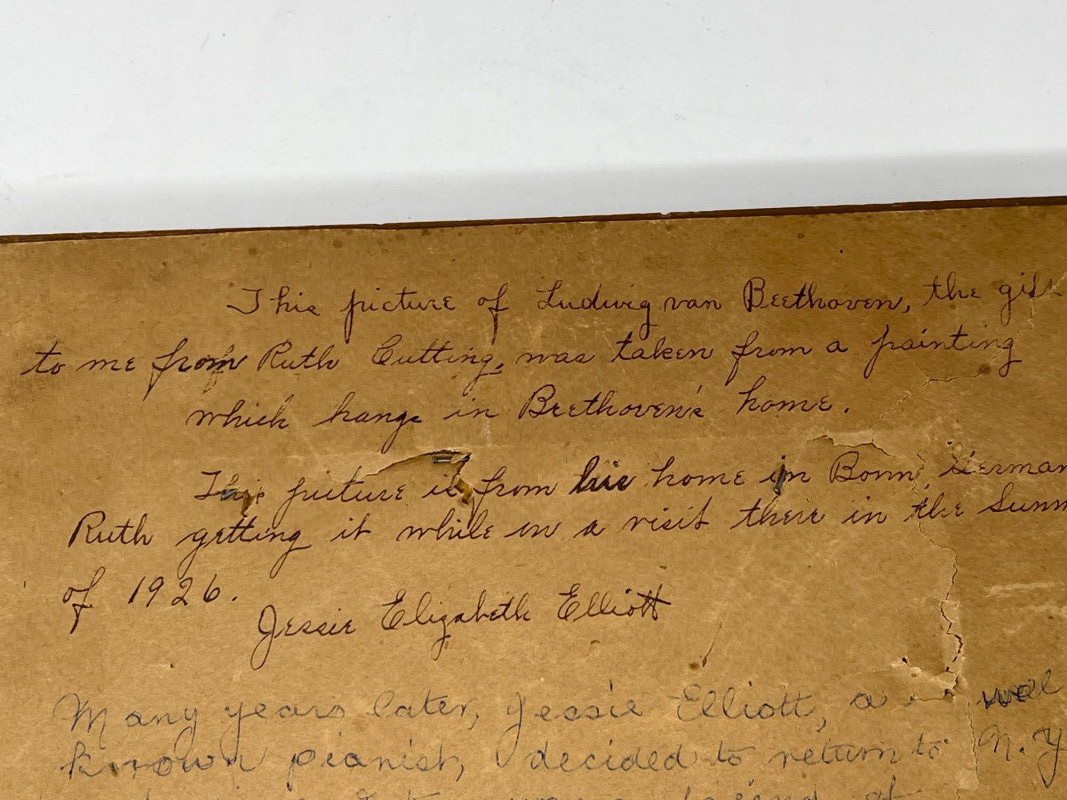 This picture of Ludwig van Beethoven, the gift
to me from Ruth Cutting, was taken from a painting
which hangs in Beethoven's home.
This picture is from his home in Bonn, German
Ruth getting it while on a visit there in the Summ
of 1926.
Jessie Elizabeth Elliott
Many years later, Jessie Elliott, a wel
known pianist, decided to return to N.Y
friend of